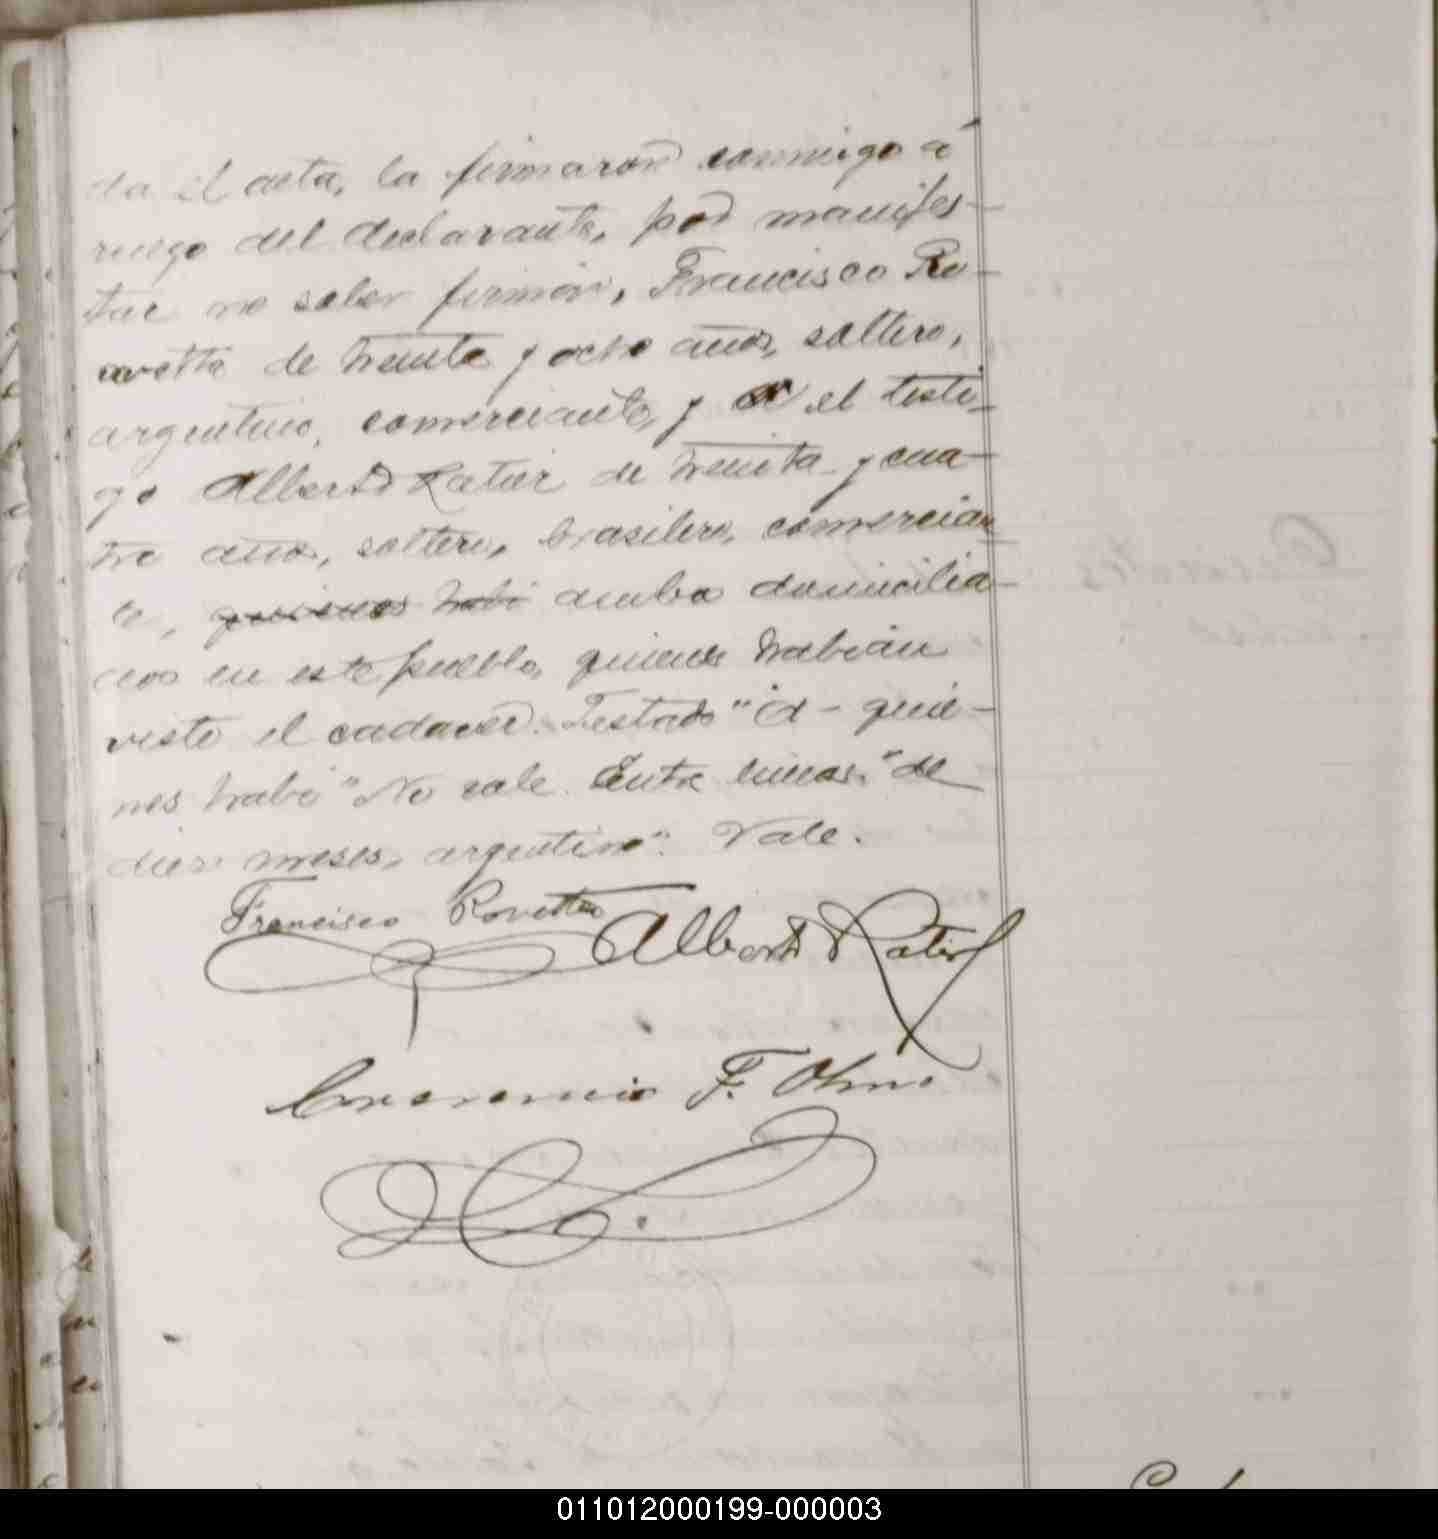 da el acta, la firmaron conmigo á
ruego del declarante, por manifes-
tar no saber firmar, Francisco Ro-
vetta de treinta y ocho años, soltero,
argentino, comerciante, y el testi-
go Alberto Ratier de treinta y cua-
tro años, soltero, brasilero, comercian-
te, quienes habi ambos domicilia-
dos en este pueblo, quienes habian
visto el cadaver. Testado "d - quie-
nes habi" No vale. Entre lineas "de
diez meses, argentino". Vale.
Francisco Rovetta Alberto Ratier
F.
011012000199-000003